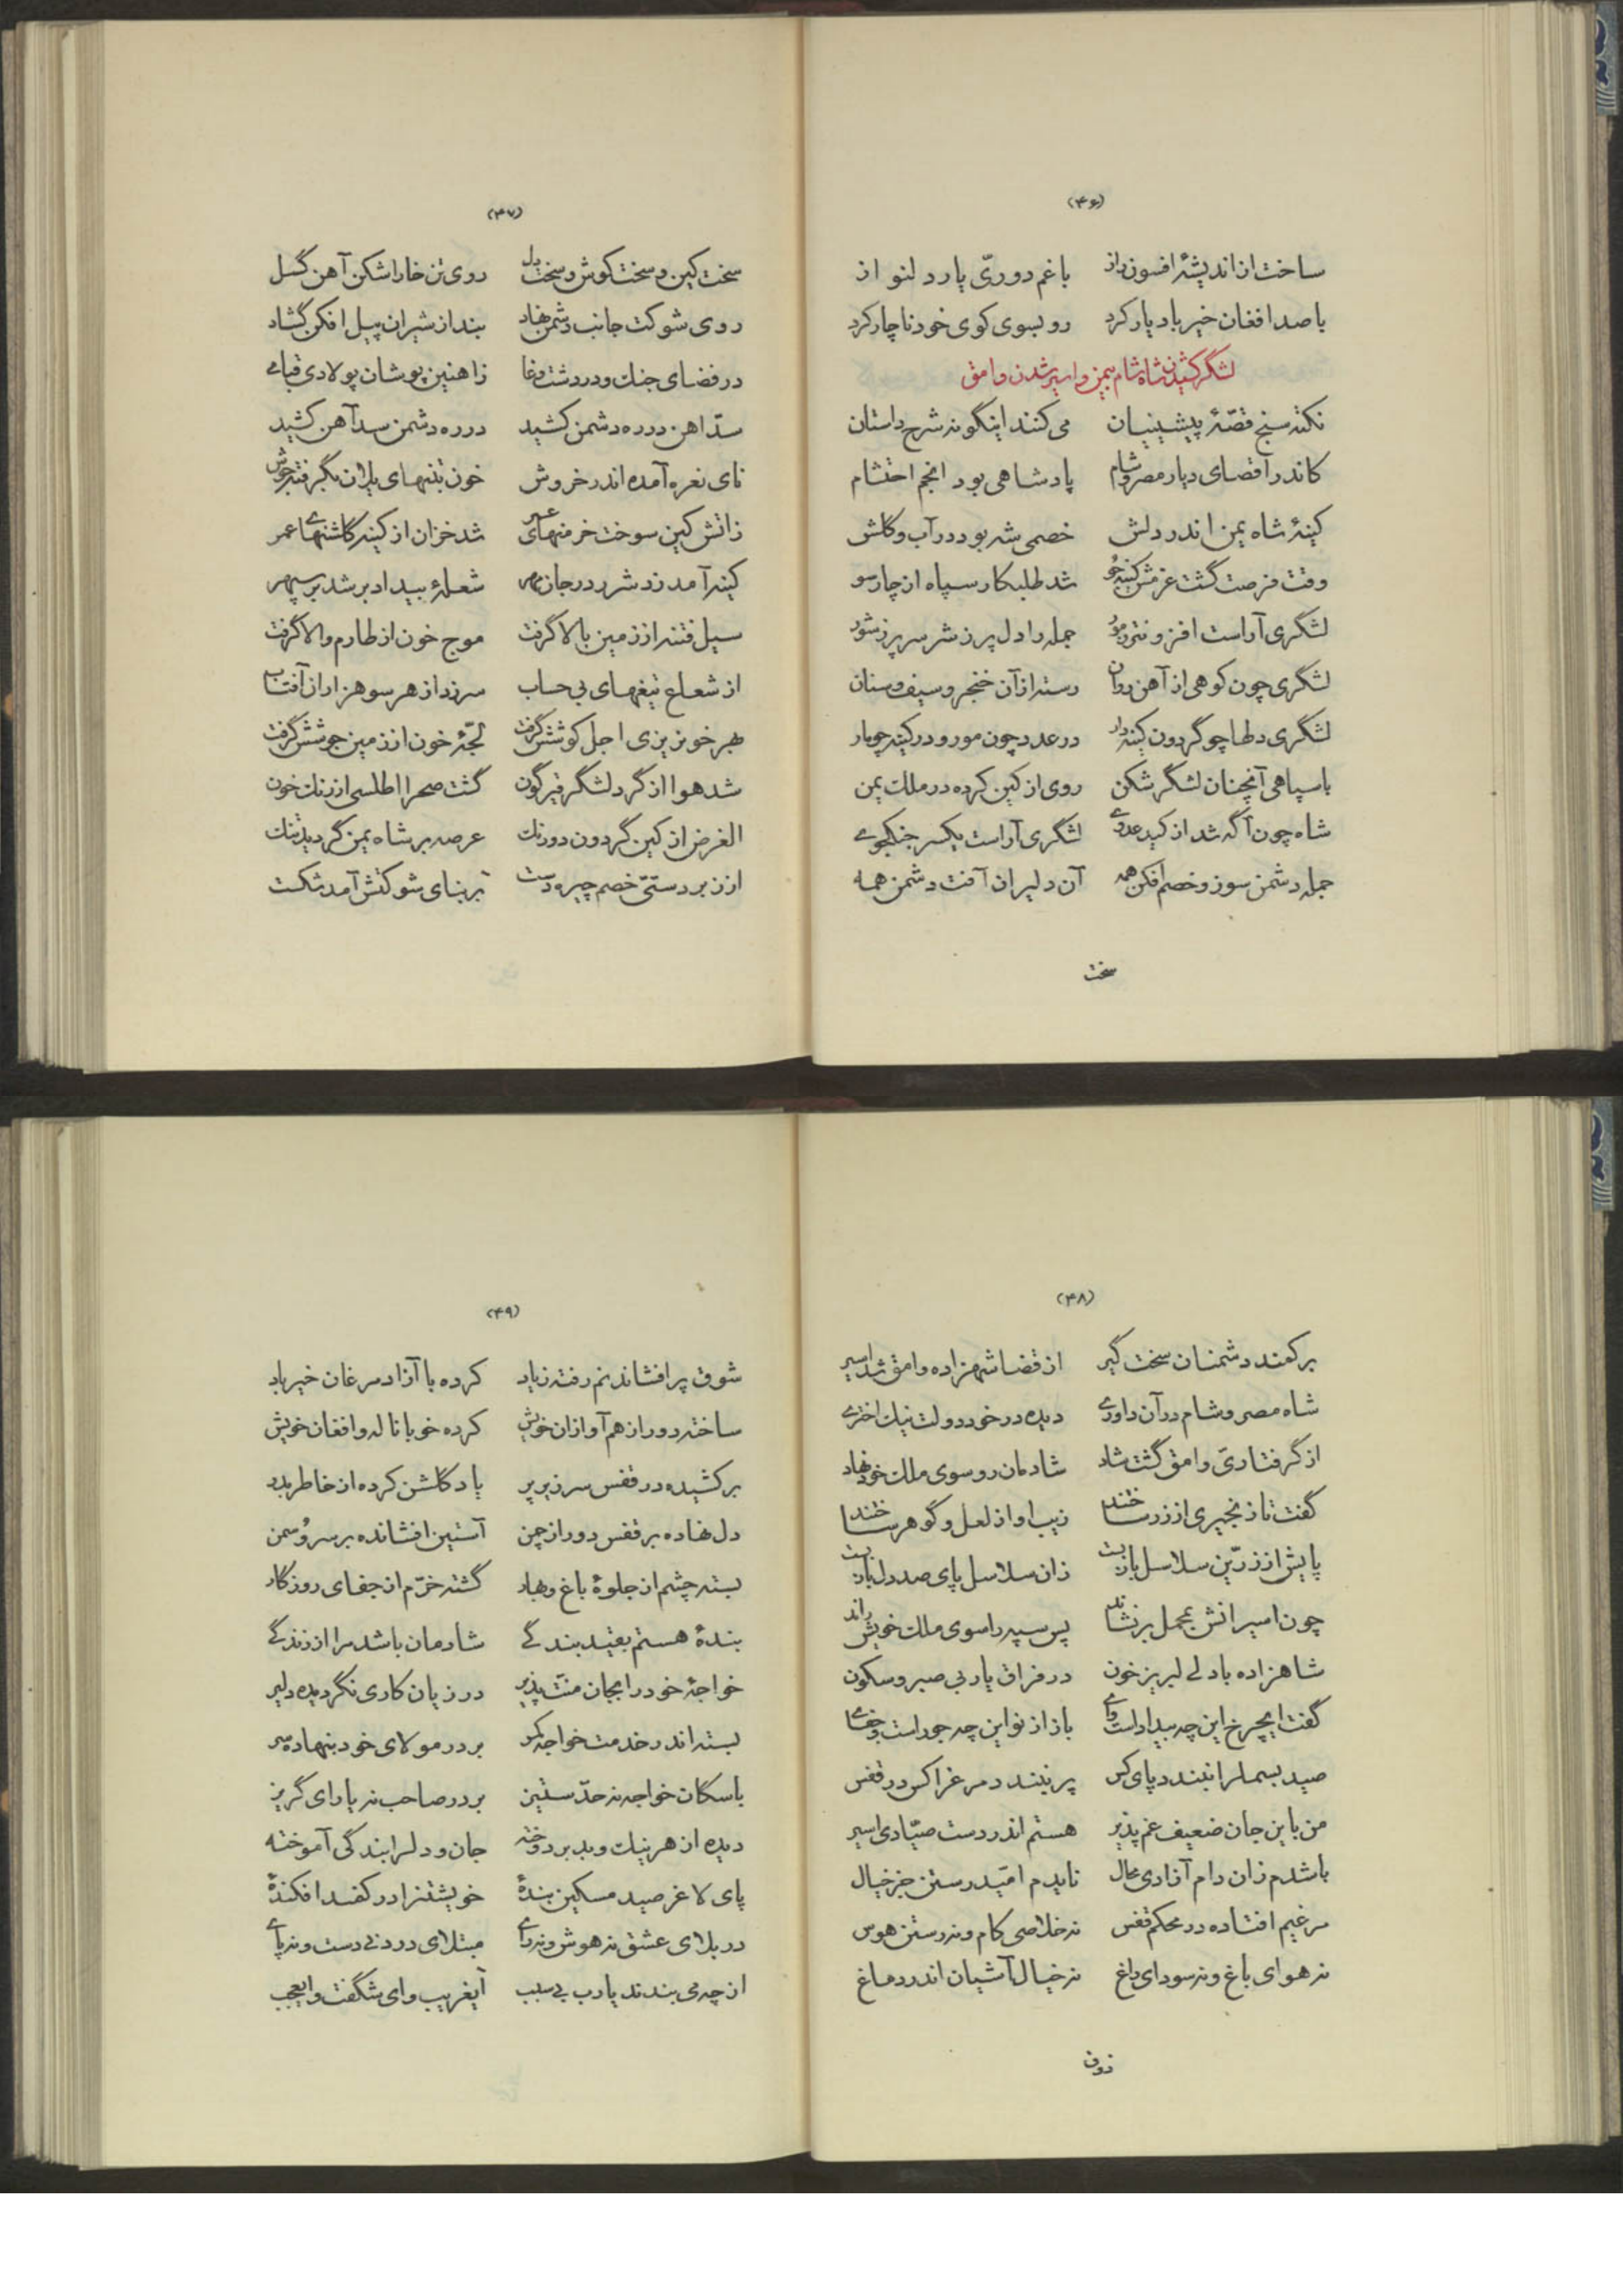 (۴۶)
ساخت از اندیشهٔ افسون راز باغم دوریّ یار دلنواز
با صد افغان خیر باد یار کرد رو بسوی کوی خود ناچار کرد
لشگر کشیدن شاه شام بیمن و اسیر شدن وامق
نکته سنج قصّهٔ پیشینیان می کنند اینگونه شرح داستان
کاندر اقصای دیار مصر و شام پادشاهی بود انجم احتشام
کینهٔ شاه یمن اندر دلش خصمی شه بود در آب و گلش
وقت فرصت گشت عزمش کینه جو شد طلبکار سپاه از چارسو
لشگری آراست افزونتر ز مور جمله را دل پر ز شر سر پر ز شور
لشگری چون کوهی از آهن روان رسته از آن خنجر و سیف و سنان
لشگری دلها چو گردون کینه دار در عدد چون مور و در کینه چو مار
با سپاهی آنچنان لشگر شکن روی از کین کرده در ملک یمن
شاه چون آگه شد از کید عدوی لشگری آراست یکسر جنگجوی
جمله دشمن سوز و خصم افکن همه آن دلیران آفت دشمن همه
سخت
(۴۷)
سخت کین و سخت کوش و سخت دل روی تن خارا شکن آهن گسل
روی شوکت جانب دشمن نهاد بند از شیران پیل افکن گشاد
در فضای جنک و در دشت وغا ز اهنین پوشان پولادی قبای
سدّ اهن در ره دشمن کشید در ره دشمن سد آهن کشید
نای نعره آمده اندر خروش خون بتنهای یلان بگرفته جوش
ز اتش کین سوخت خرمنهای عمر شد خزان از کینه گلشنهای عمر
کینه آمد زد شرر در جان مهر شعلهٔ بیداد بر شد بر سپهر
سیل فتنه از زمین بالا گرفت موج خون از طارم والا گرفت
از شعاع تیغهای بی حساب سر زد از هر سو هزاران آفتاب
بهر خونریزی اجل کوشش گرفت لجّهٔ خون از زمین جوشش گرفت
شد هوا از گرد لشگر قیرگون گشت صحرا اطلسی از رنک خون
الغرض از کین گردون دورنک عرصه بر شاه یمن گردید تنک
از زبردستیّ خصم چیره دست بر بنای شوکتش آمد شکست
(۴۸)
بر کمند دشمنان سخت گیر از قضا شهزاده وامق شد اسیر
شاه مصر و شام در آن داوری دیده در خود دولت نیک اختری
از گرفتاریّ وامق گشت شاد شادمان رو سوی ملک خود نهاد
گفت تا زنجیری از زر ساختند زیب او از لعل و گوهر ساختند
پایش از زرّین سلاسل باز بست زان سلاسل پای صد دل باز بست
چون اسیرانش بمحمل بر نشاند پس سپه را سوی ملک خویش راند
شاهزاده با دلی لبریز خون در فراق یار بی صبر و سکون
گفت ایچرخ این چه بیداد است وای باز از نو این چه جور است و جفای
صید بسمل را نبندد پای کس پر نبندد مرغ را کس در قفس
من باین جان ضعیف غم پذیر هستم اندر دست صیّادی اسیر
باشدم زان دام آزادی محال نایدم امّید رستن جز خیال
مرغیم افتاده در محکم قفس نه خلاصی کام و نه رستن هوس
نه هوای باغ و نه سودای راغ نه خیال آشیان اندر دماغ
(۴۹)
شوق پر افشاندنم رفته ز یاد کرده با آزاد مرغان خیر باد
ساخته دور از هم آوازان خویش کرده خو با ناله و افغان خویش
بر کشیده در قفس سر زیر پر یاد گلشن کرده از خاطر بدر
دل نهاده بر قفس دور از چمن آستین افشانده بر سرو و سمن
بسته چشم از جلوهٔ باغ و بهار گشته خرّم از جفای روزگار
بندهٔ هستم بقید بندگی شادمان باشد مرا از زندگی
خواجهٔ خود را بجان منّت پذیر در زیان کاری نگردیده دلیر
بسته اندر خدمت خواجه کمر بر در مولای خود بنهاده سر
با سگان خواجه نه حدّ ستیز بر در صاحب نه یارای گریز
دیده از هر نیک و بد بر دوخته جان و دل را بندگی آموخته
پای لاغر صید مسکین بندهٔ خویشتن را در کمند افکندهٔ
در بلای عشق نه هوش و نه رای مبتلای درد نی دست و نه پای
از چه می بندند یارب بی سبب ای غریب و ای شگفت و ایعجب